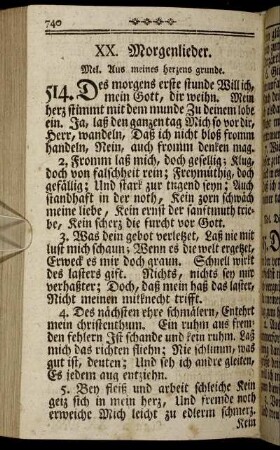 740
XX. Morgenlieder.
Mel. Aus meines herzens grunde.
514. Des morgens erste stunde Will ich,
mein Gott, dir weihn. Mein
herz stimmt mit dem munde Zu deinem lobe
ein. Ja, laß den ganzen tag Mich so vor dir,
Herr, wandeln, Daß ich nicht bloß fromm
handeln, Nein, auch fromm denken mag.
2. Fromm laß mich, doch gesellig; Klug,
doch von falschheit rein; Freymüthig, doch
gefällig; Und stark zur tugend seyn; Auch
standhaft in der noth, Kein zorn schwäch
meine liebe, Kein ernst der sanftmuth trie-
be, Kein scherz die furcht vor Gott.
3. Was dein gebot verletzet, Laß nie mit
lust mich schaun; Wenn es die welt ergetzet,
Erweck es mir doch graun. Schnell wirkt
des lasters gift. Nichts, nichts sey mir
verhaßter; Doch, daß mein haß das laster,
Nicht meinen mitknecht trifft.
4. Des nächsten ehre schmälern, Entehrt
mein christenthum. Ein ruhm aus frem-
den fehlern Ist schande und kein ruhm. Laß
mich das richten fliehn; Nie schlimm, was
gut ist, deuten; Und seh ich andre gleiten,
Es jedem aug entziehn.
5. Bey fleiß und arbeit schleiche Kein
geiz sich in mein herz, Und fremde noth
erweiche Mich leicht zu edlerm schmerz.
Kein